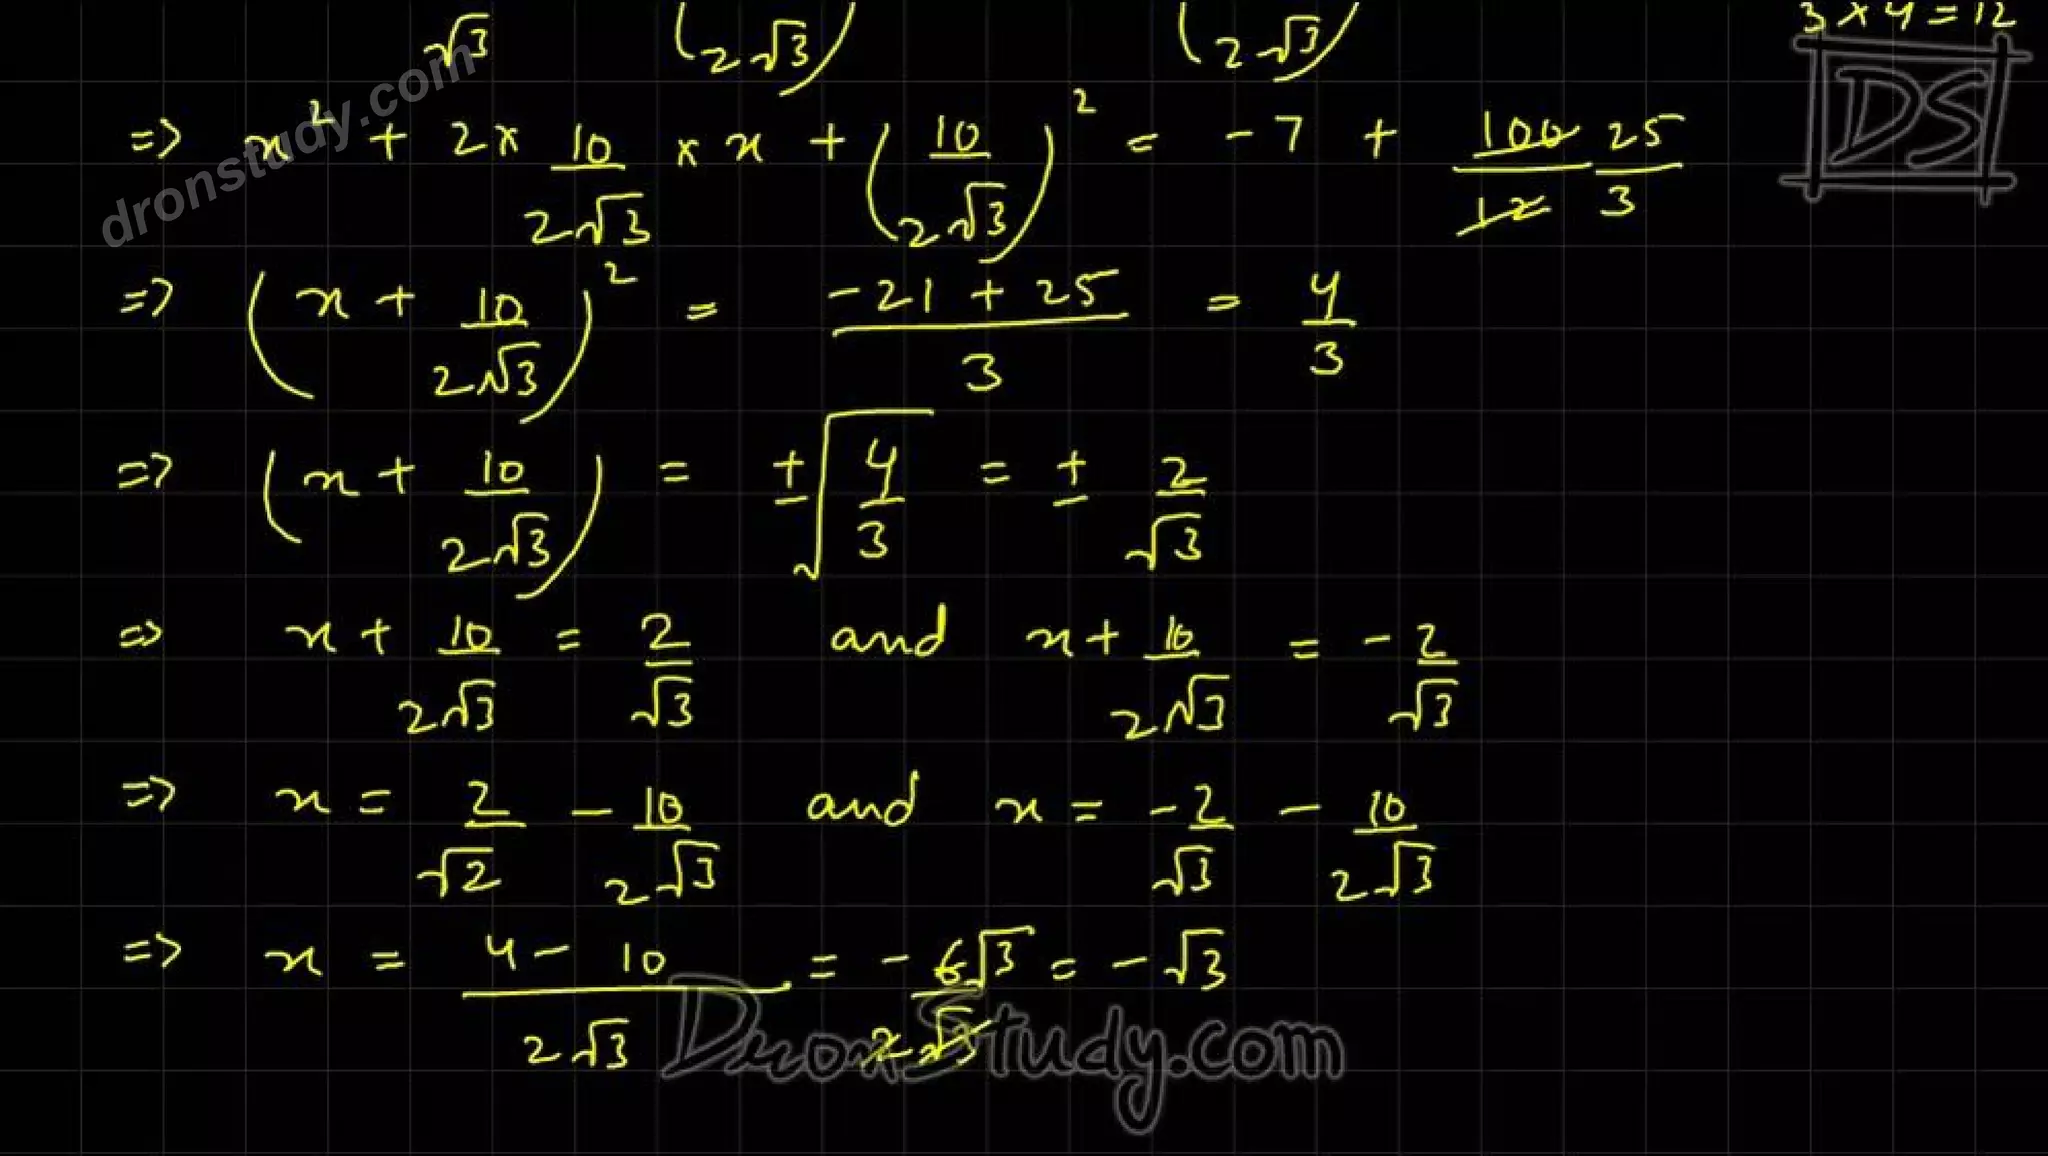 √3 (2√3) (2√3) 3×4=12
DS
dronstudy.com
=> x² + 2× 10/2√3 × x + (10/2√3)² = -7 + 100/12 25/3
=> (x + 10/2√3)² = -21+25/3 = 4/3
=> (x + 10/2√3) = ±√4/3 = ± 2/√3
=> x + 10/2√3 = 2/√3 and x + 10/2√3 = -2/√3
=> x = 2/√2 - 10/2√3 and x = -2/√3 - 10/2√3
=> x = 4-10/2√3 = -6√3/2√3 = -√3
DronStudy.com